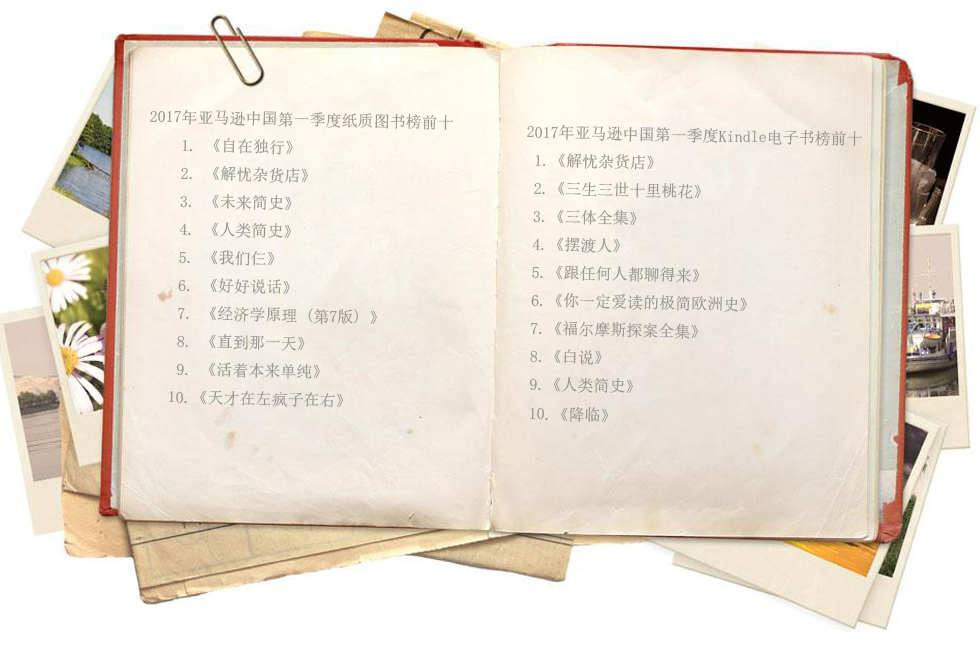 2017年亚马逊中国第一季度纸质图书榜前十
1. 《自在独行》
2. 《解忧杂货店》
3. 《未来简史》
4. 《人类简史》
5. 《我们仨》
6. 《好好说话》
7. 《经济学原理（第7版）》
8. 《直到那一天》
9. 《活着本来单纯》
10. 《天才在左疯子在右》
2017年亚马逊中国第一季度Kindle电子书榜前十
1. 《解忧杂货店》
2. 《三生三世十里桃花》
3. 《三体全集》
4. 《摆渡人》
5. 《跟任何人都聊得来》
6. 《你一定爱读的极简欧洲史》
7. 《福尔摩斯探案全集》
8. 《白说》
9. 《人类简史》
10. 《降临》